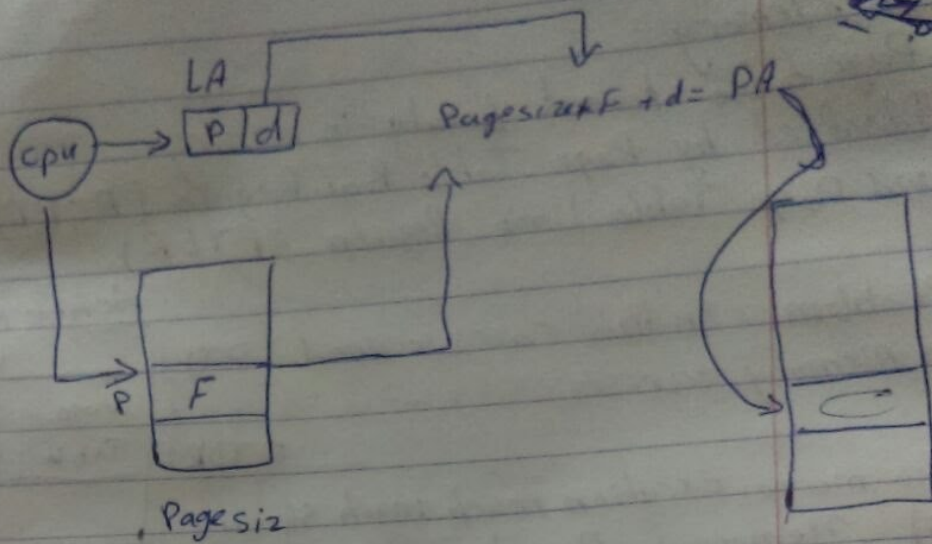 LA
cpu
P d
Pagesize*F + d = PA
P
F
Page siz